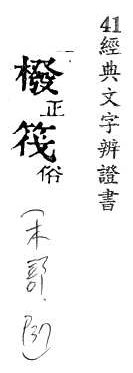 41經典文字辨證書
橃正筏俗
（木部.